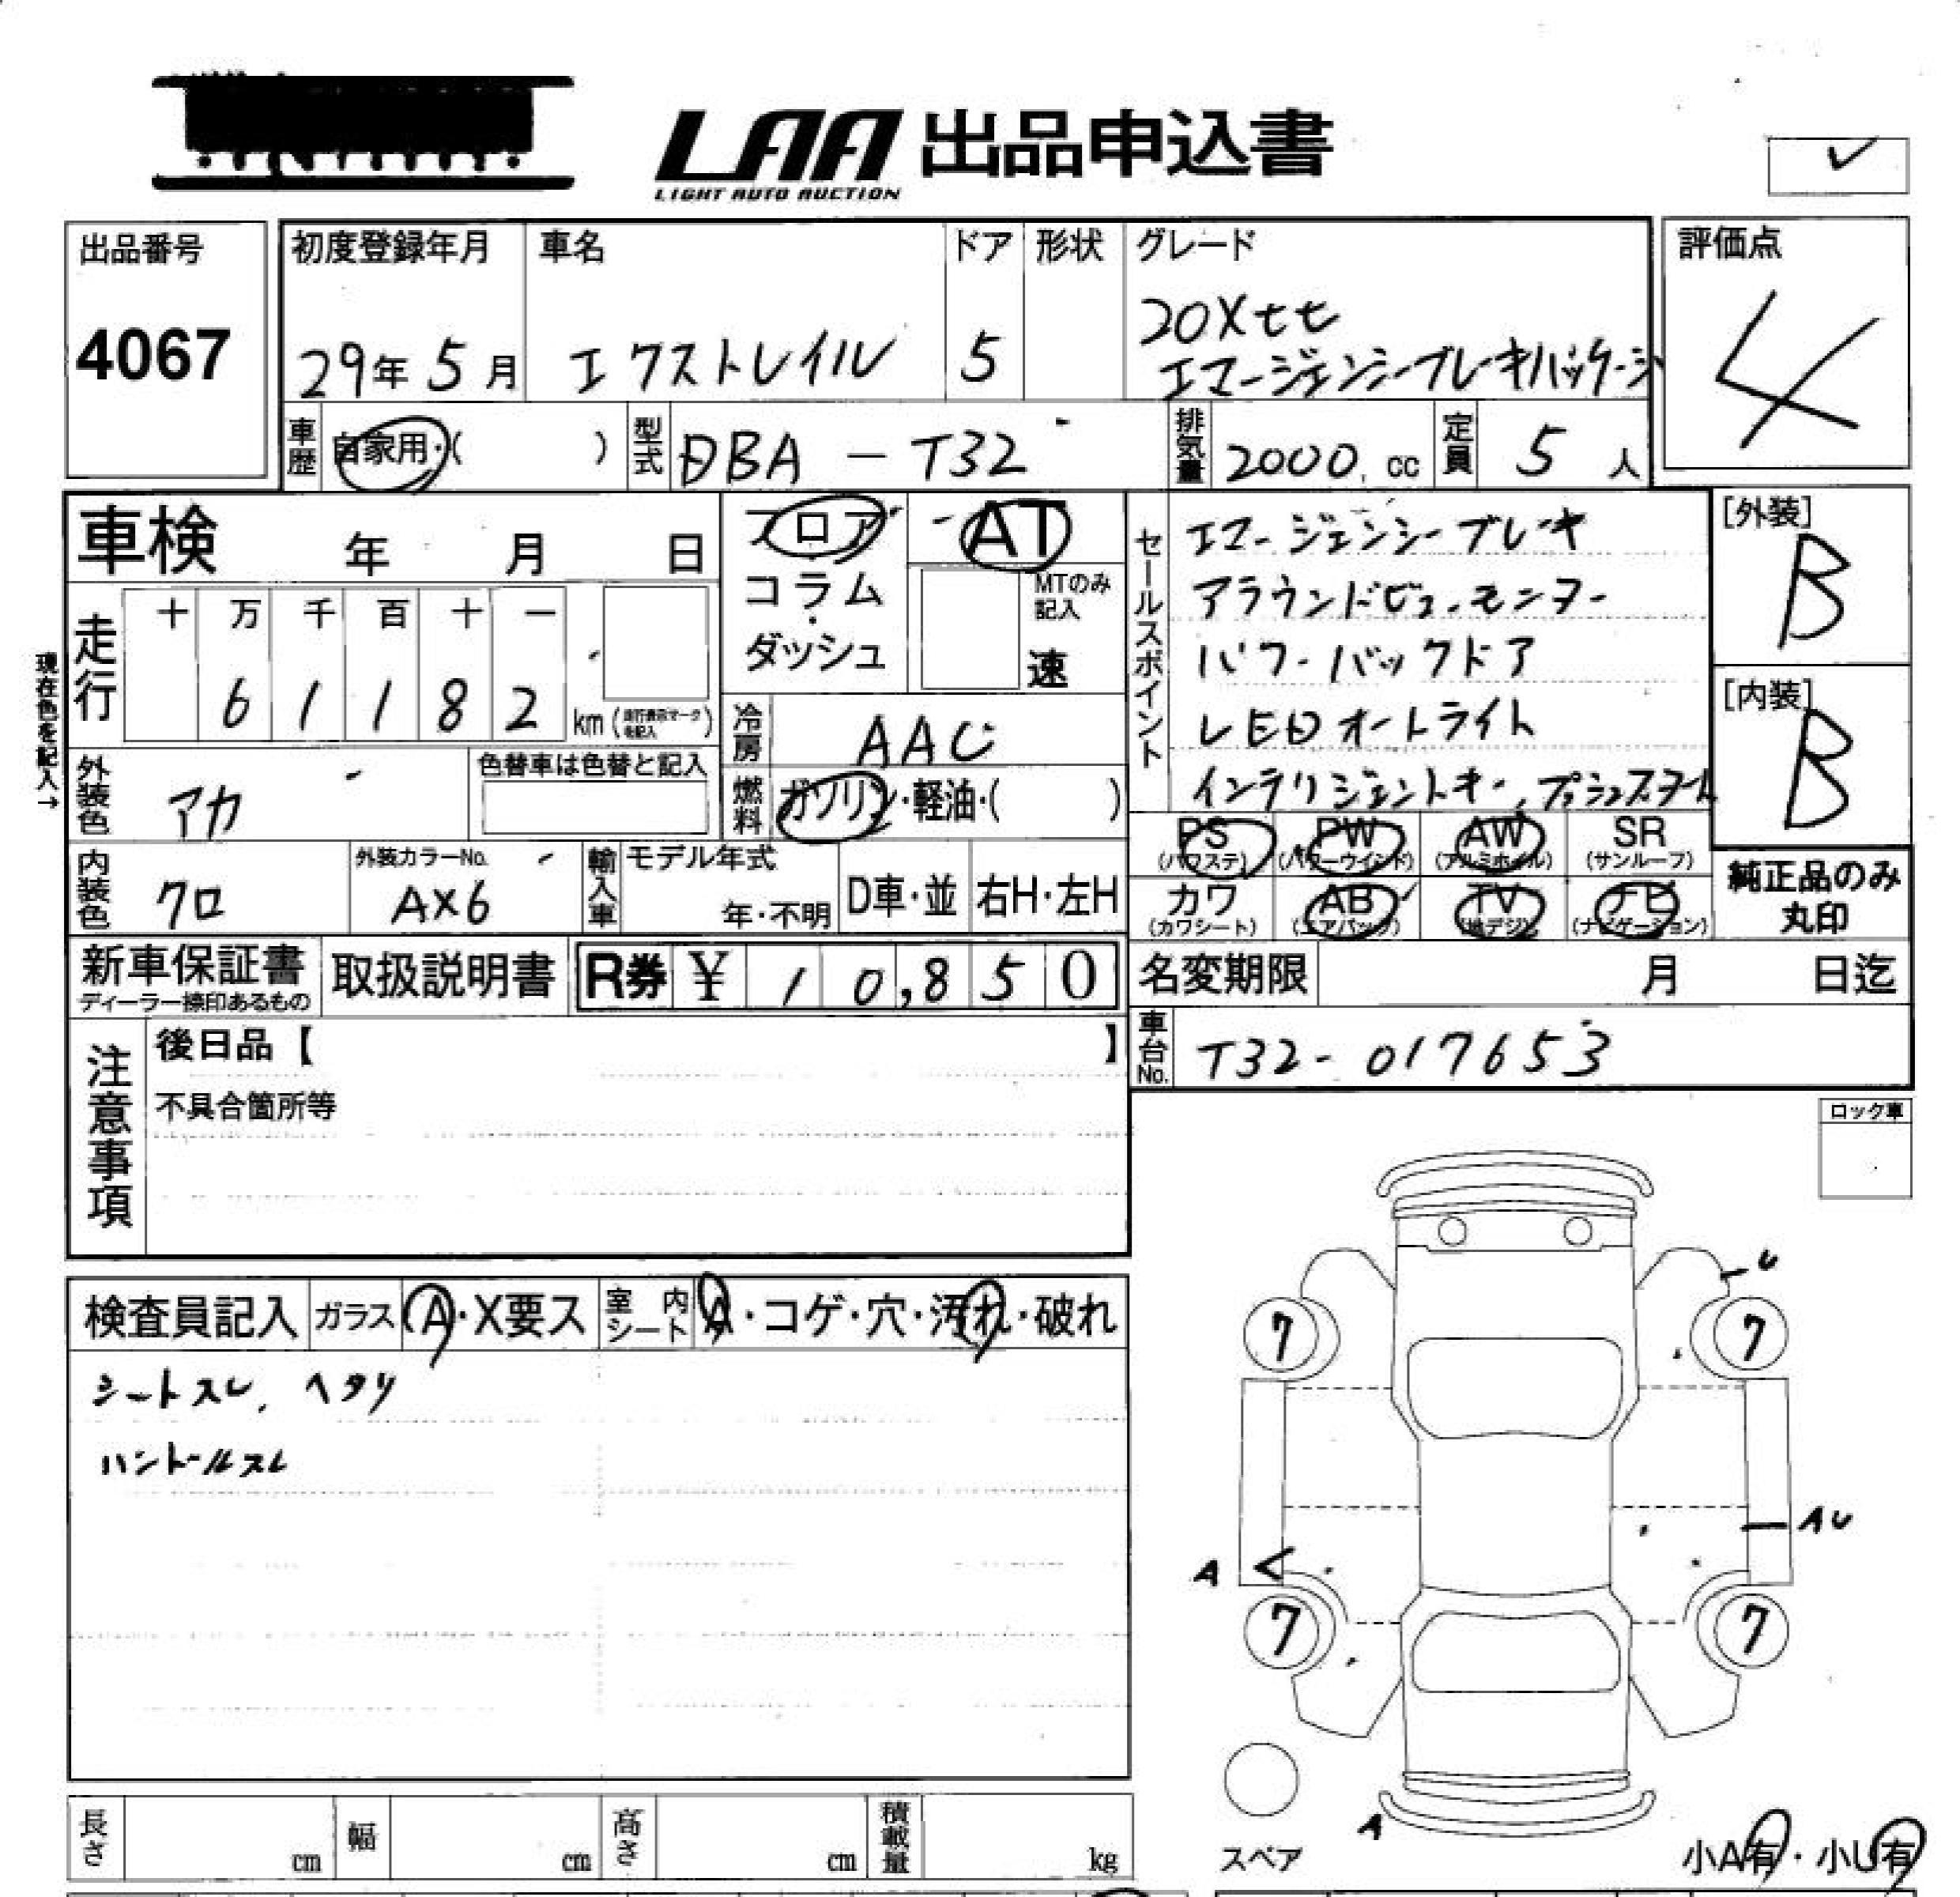 LAA 出品申込書
LIGHT AUTO AUCTION
✓
出品番号
4067
初度登録年月
29年 5月
車名
エクストレイル
ドア
5
形状
グレード
20Xtt
エマージェンシーブレーキパッケージ
評価点
4
車歴
自家用・( )
型式
DBA - T32
排気量
2000. cc
定員
5 人
車検 年 月 日
フロア
コラム
・
ダッシュ
AT
MTのみ
記入
速
セールスポイント
エマージェンシーブレーキ
アラウンドビューモニター
パワーバックドア
LEDオートライト
インテリジェントキー、プッシュスタート
[外装]
B
[内装]
B
現在色を記入→
走行
十 万 千 百 十 一
6 1 1 8 2
km (走行表示マークを記入)
冷房
AAC
外装色
アカ
色替車は色替と記入
燃料
ガソリン・軽油・( )
PS (パワステ)
PW (パワーウインド)
AW (アルミホイル)
SR (サンルーフ)
カワ (カワシート)
AB (エアバック)
TV (地デジ)
ナビ (ナビゲーション)
純正品のみ
丸印
内装色
クロ
外装カラーNo.
AX6
輸入車
モデル年式
年・不明
D車・並
右H・左H
新車保証書
ディーラー捺印あるもの
取扱説明書
R券 ¥ 10,850
名変期限 月 日迄
車台No.
T32-017653
注意事項
後日品【 】
不具合箇所等
ロック車
検査員記入
ガラス A・X要ス
室内シート A・コゲ・穴・汚れ・破れ
シートスレ、ヘタリ
ハンドルスレ
U
7 7
AU
A
7 7
A
スペア
小A有・小U有
長さ cm
幅 cm
高さ cm
積載量 kg